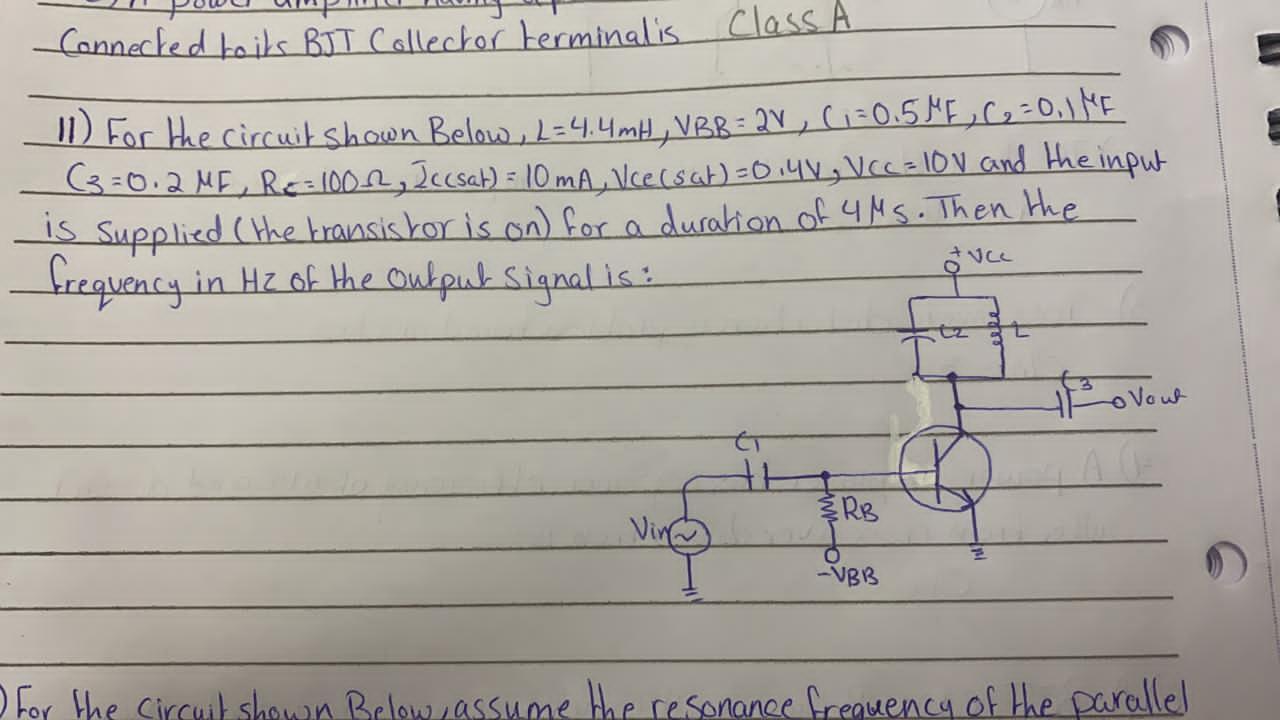 power amplifier having
Connected to its BJT Collector terminal is Class A
11) For the circuit shown Below, L=4.4mH, VBB=2V, C1=0.5μF, C2=0.1μF
C3=0.2 MF, RC=100Ω, Ic(sat)=10mA, Vce(sat)=0.4V, Vcc=10V and the input
is supplied (the transistor is on) for a duration of 4μs. Then the
frequency in HZ of the output signal is:
+VCC
C2 L
C3
Vout
C1
RB
Vin
-VBB
)For the circuit shown Below, assume the resonance frequency of the parallel